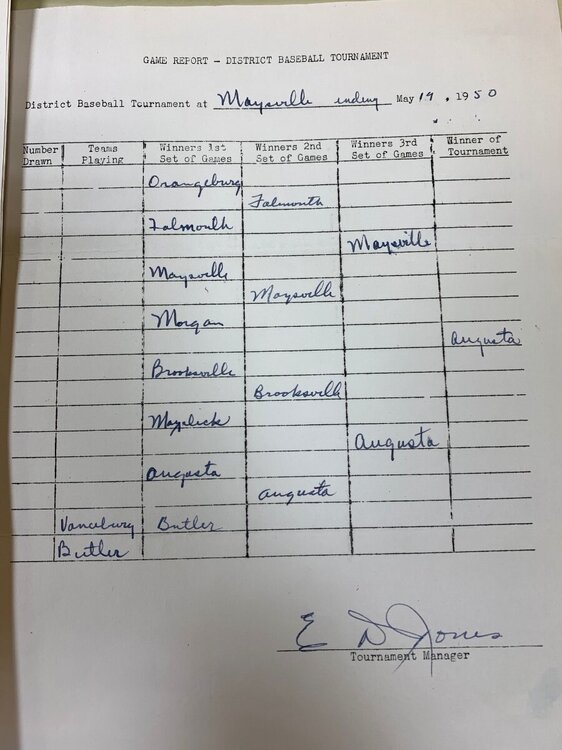 GAME REPORT - DISTRICT BASEBALL TOURNAMENT
District Baseball Tournament at Maysville ending May 19, 1950
Number Drawn Teams Playing Winners 1st Set of Games Winners 2nd Set of Games Winners 3rd Set of Games Winner of Tournament
Orangeburg
Falmouth
Falmouth
Maysville
Maysville
Maysville
Morgan
Augusta
Brooksville
Brooksville
Mayslick
Augusta
Augusta
Augusta
Vanceburg Butler
Butler
E D Jones
Tournament Manager